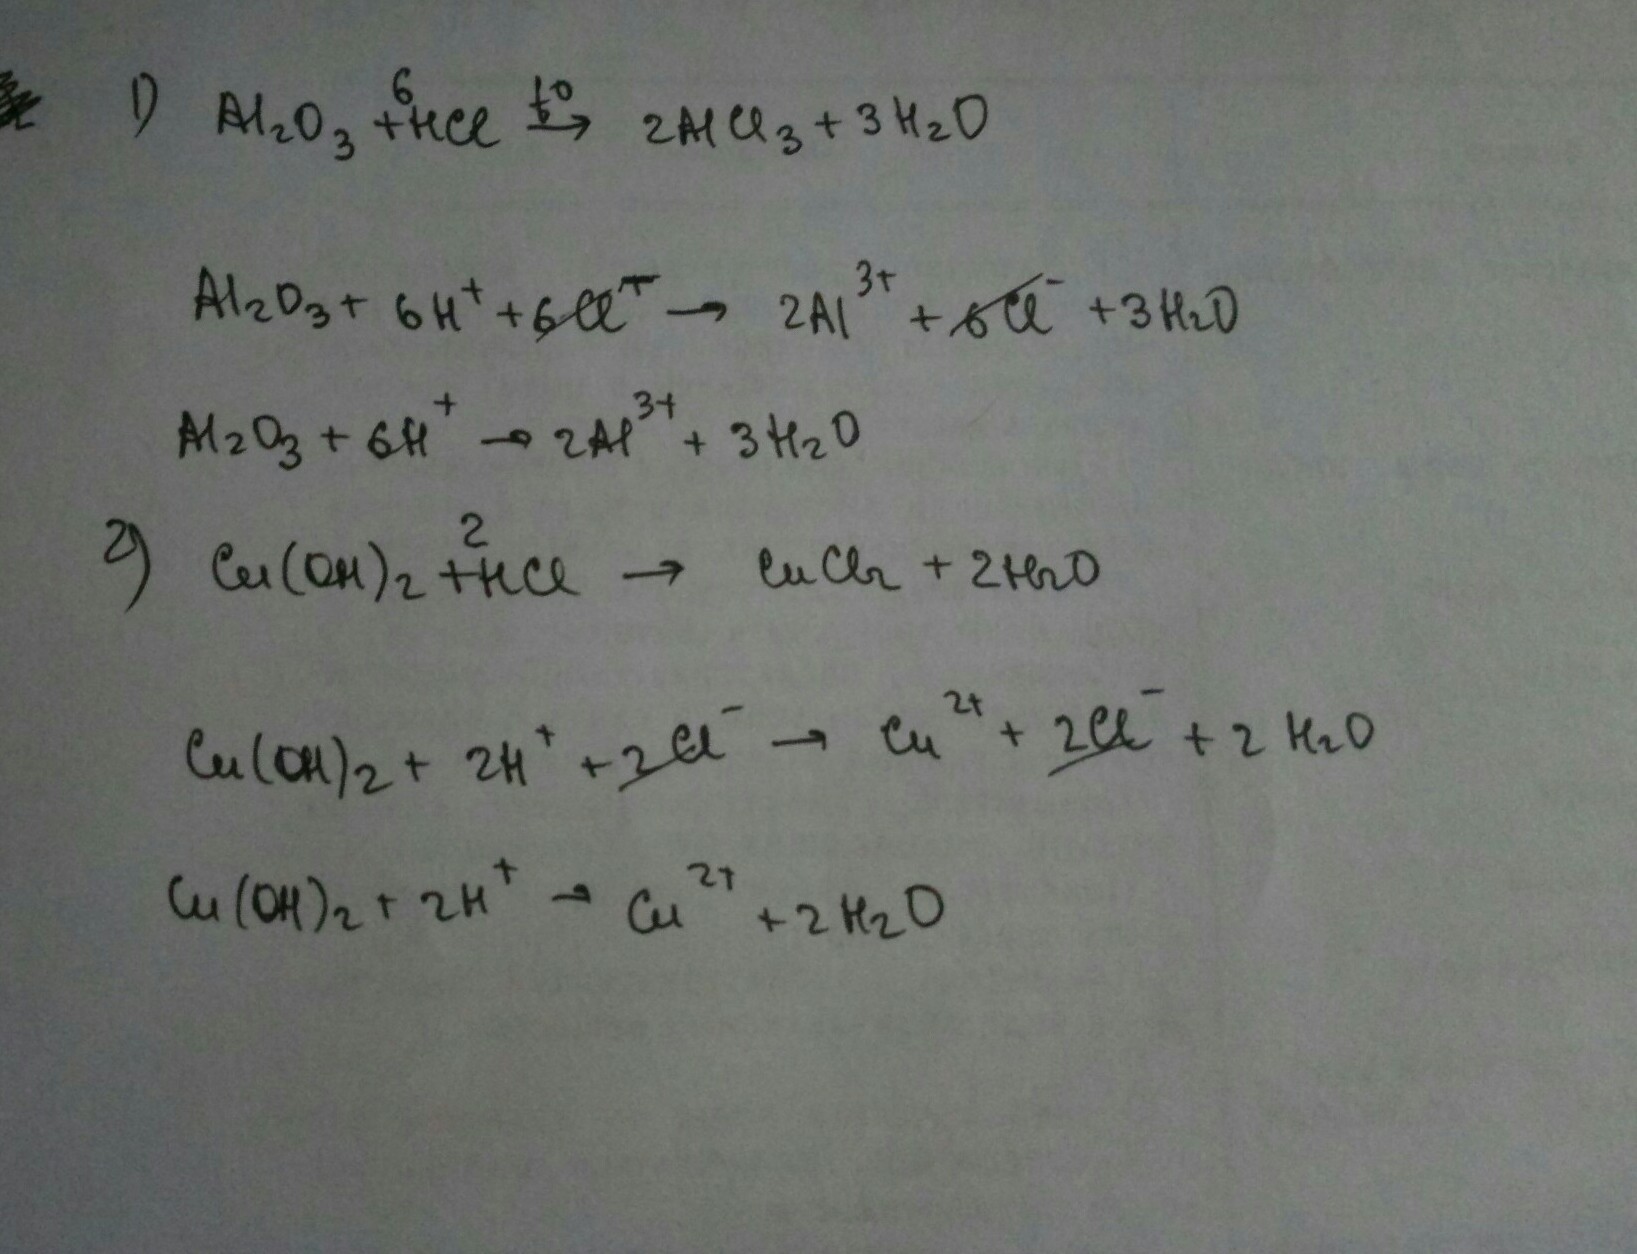 1) Al₂O₃ + 6HCl t°→ 2AlCl₃ + 3H₂O
Al₂O₃ + 6H⁺ + 6Cl⁻ → 2Al³⁺ + 6Cl⁻ + 3H₂O
Al₂O₃ + 6H⁺ → 2Al³⁺ + 3H₂O
2) Cu(OH)₂ + 2HCl → CuCl₂ + 2H₂O
Cu(OH)₂ + 2H⁺ + 2Cl⁻ → Cu²⁺ + 2Cl⁻ + 2H₂O
Cu(OH)₂ + 2H⁺ → Cu²⁺ + 2H₂O